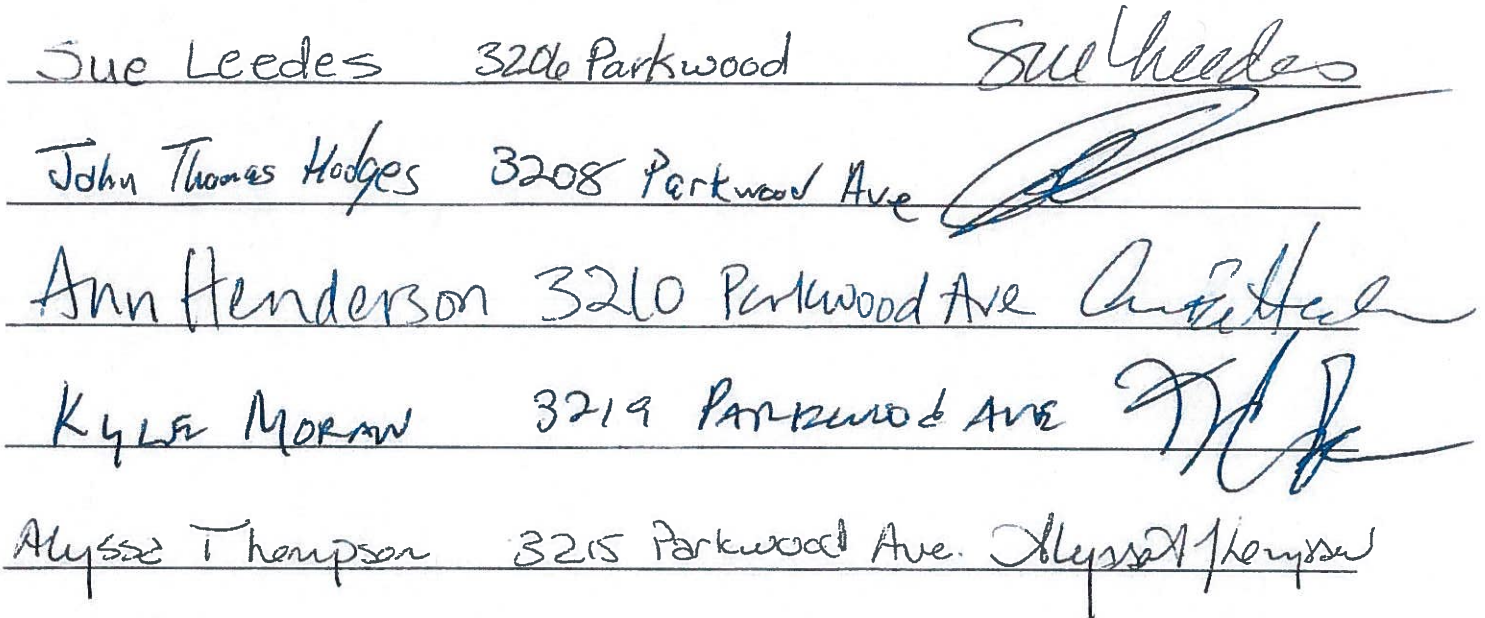 Sue Leedes 3206 Parkwood Sue Leedes
John Thomas Hodges 3208 Parkwood Ave
Ann Henderson 3210 Parkwood Ave
Kyle Moran 3219 Parkwood Ave
Alyssa Thompson 3215 Parkwood Ave. Alyssa Thompson